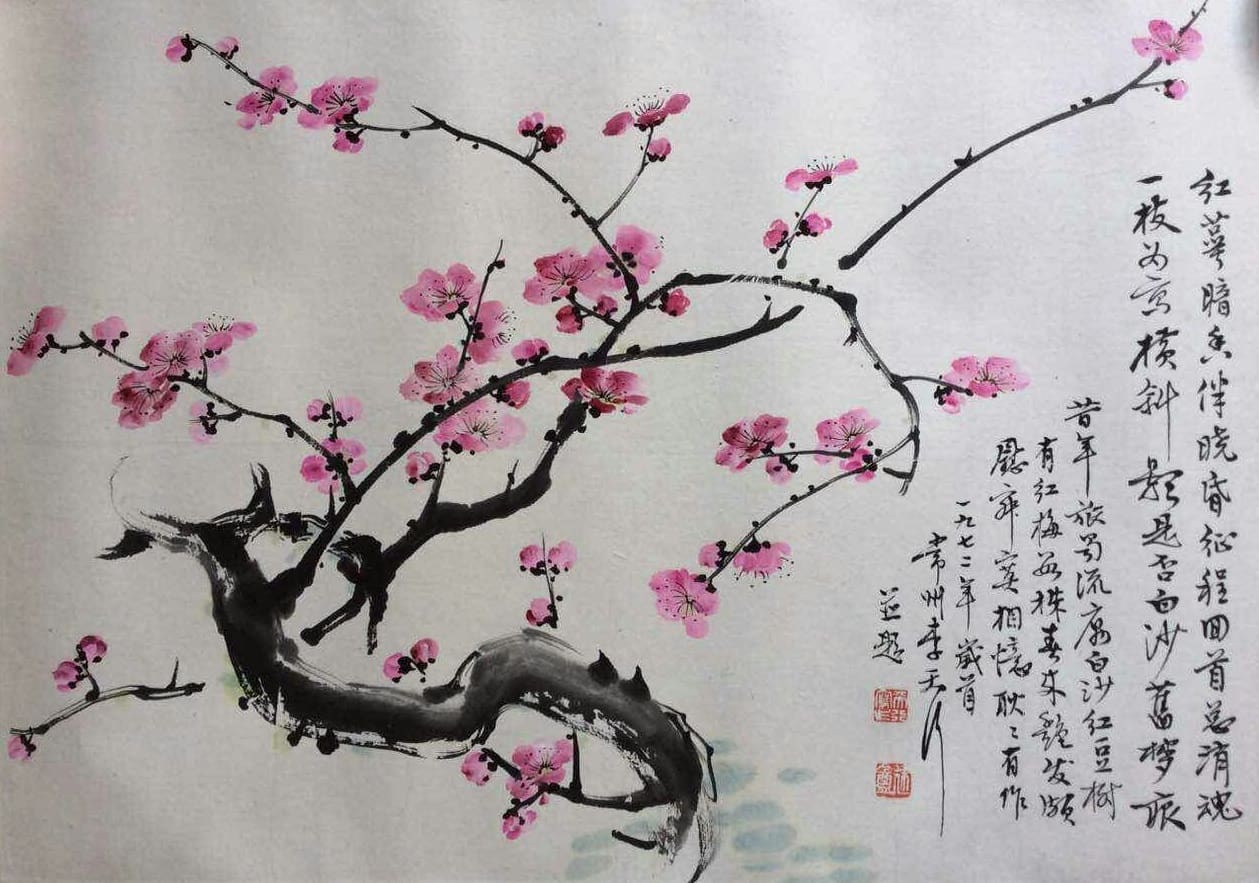 红萼暗香伴晓昏征程回首总消魂
一枝为写横斜影是否白沙旧梦痕
昔年旅蜀流寓白沙红豆树
有红梅数株春来艳发颇
慰寂寞相忆耿〻有作
一九七二年岁首
常州李天行
并题